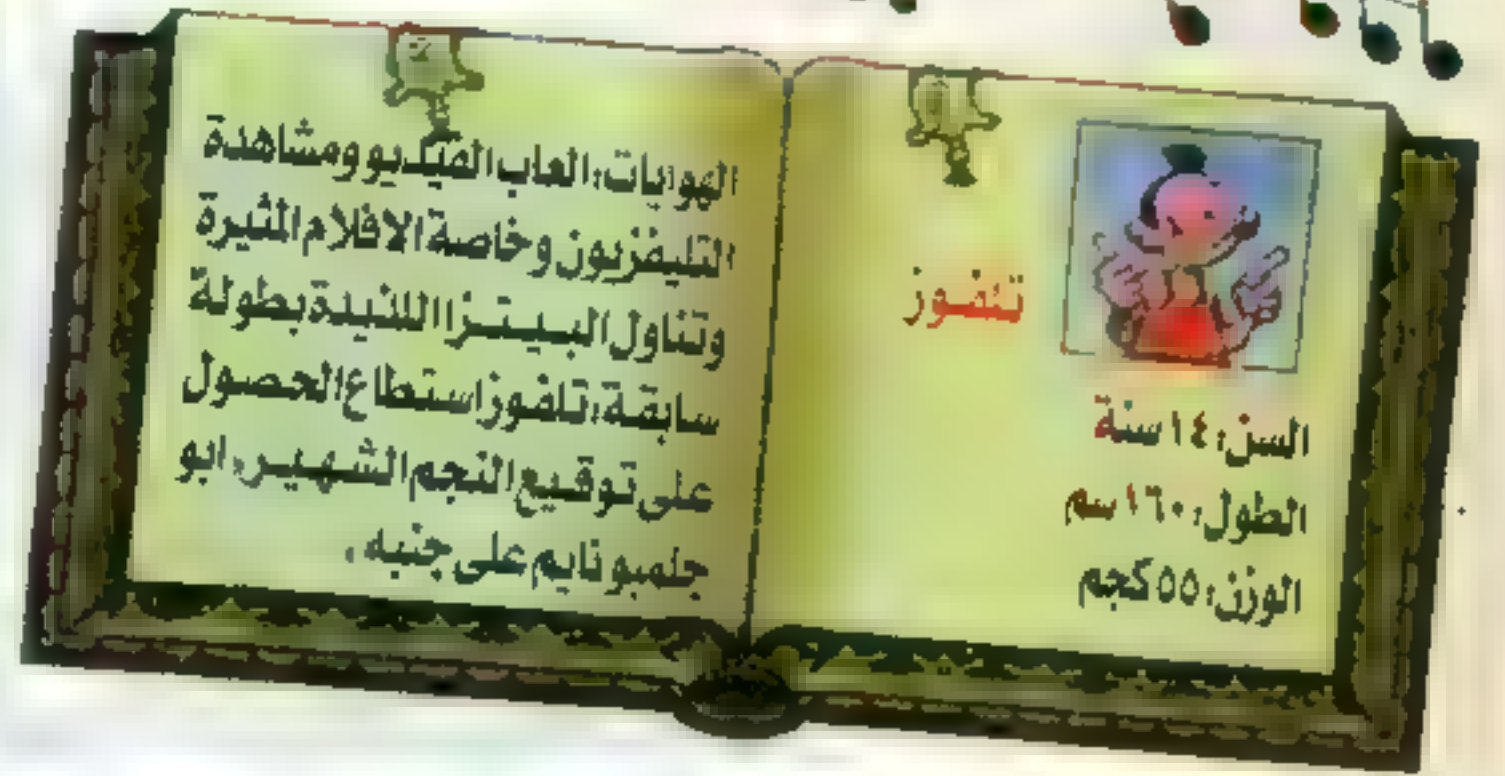 تلفوز
السن: ١٤ سنة
الطول: ١٦٠ سم
الوزن: ٥٥ كجم
الهوايات: العاب الفيديو ومشاهدة
التليفزيون وخاصة الافلام المثيرة
وتناول البيتزا اللذيذة بطولة
سابقة: تلفوز استطاع الحصول
على توقيع النجم الشهير: ابو
جلمبو نايم على جنبه.